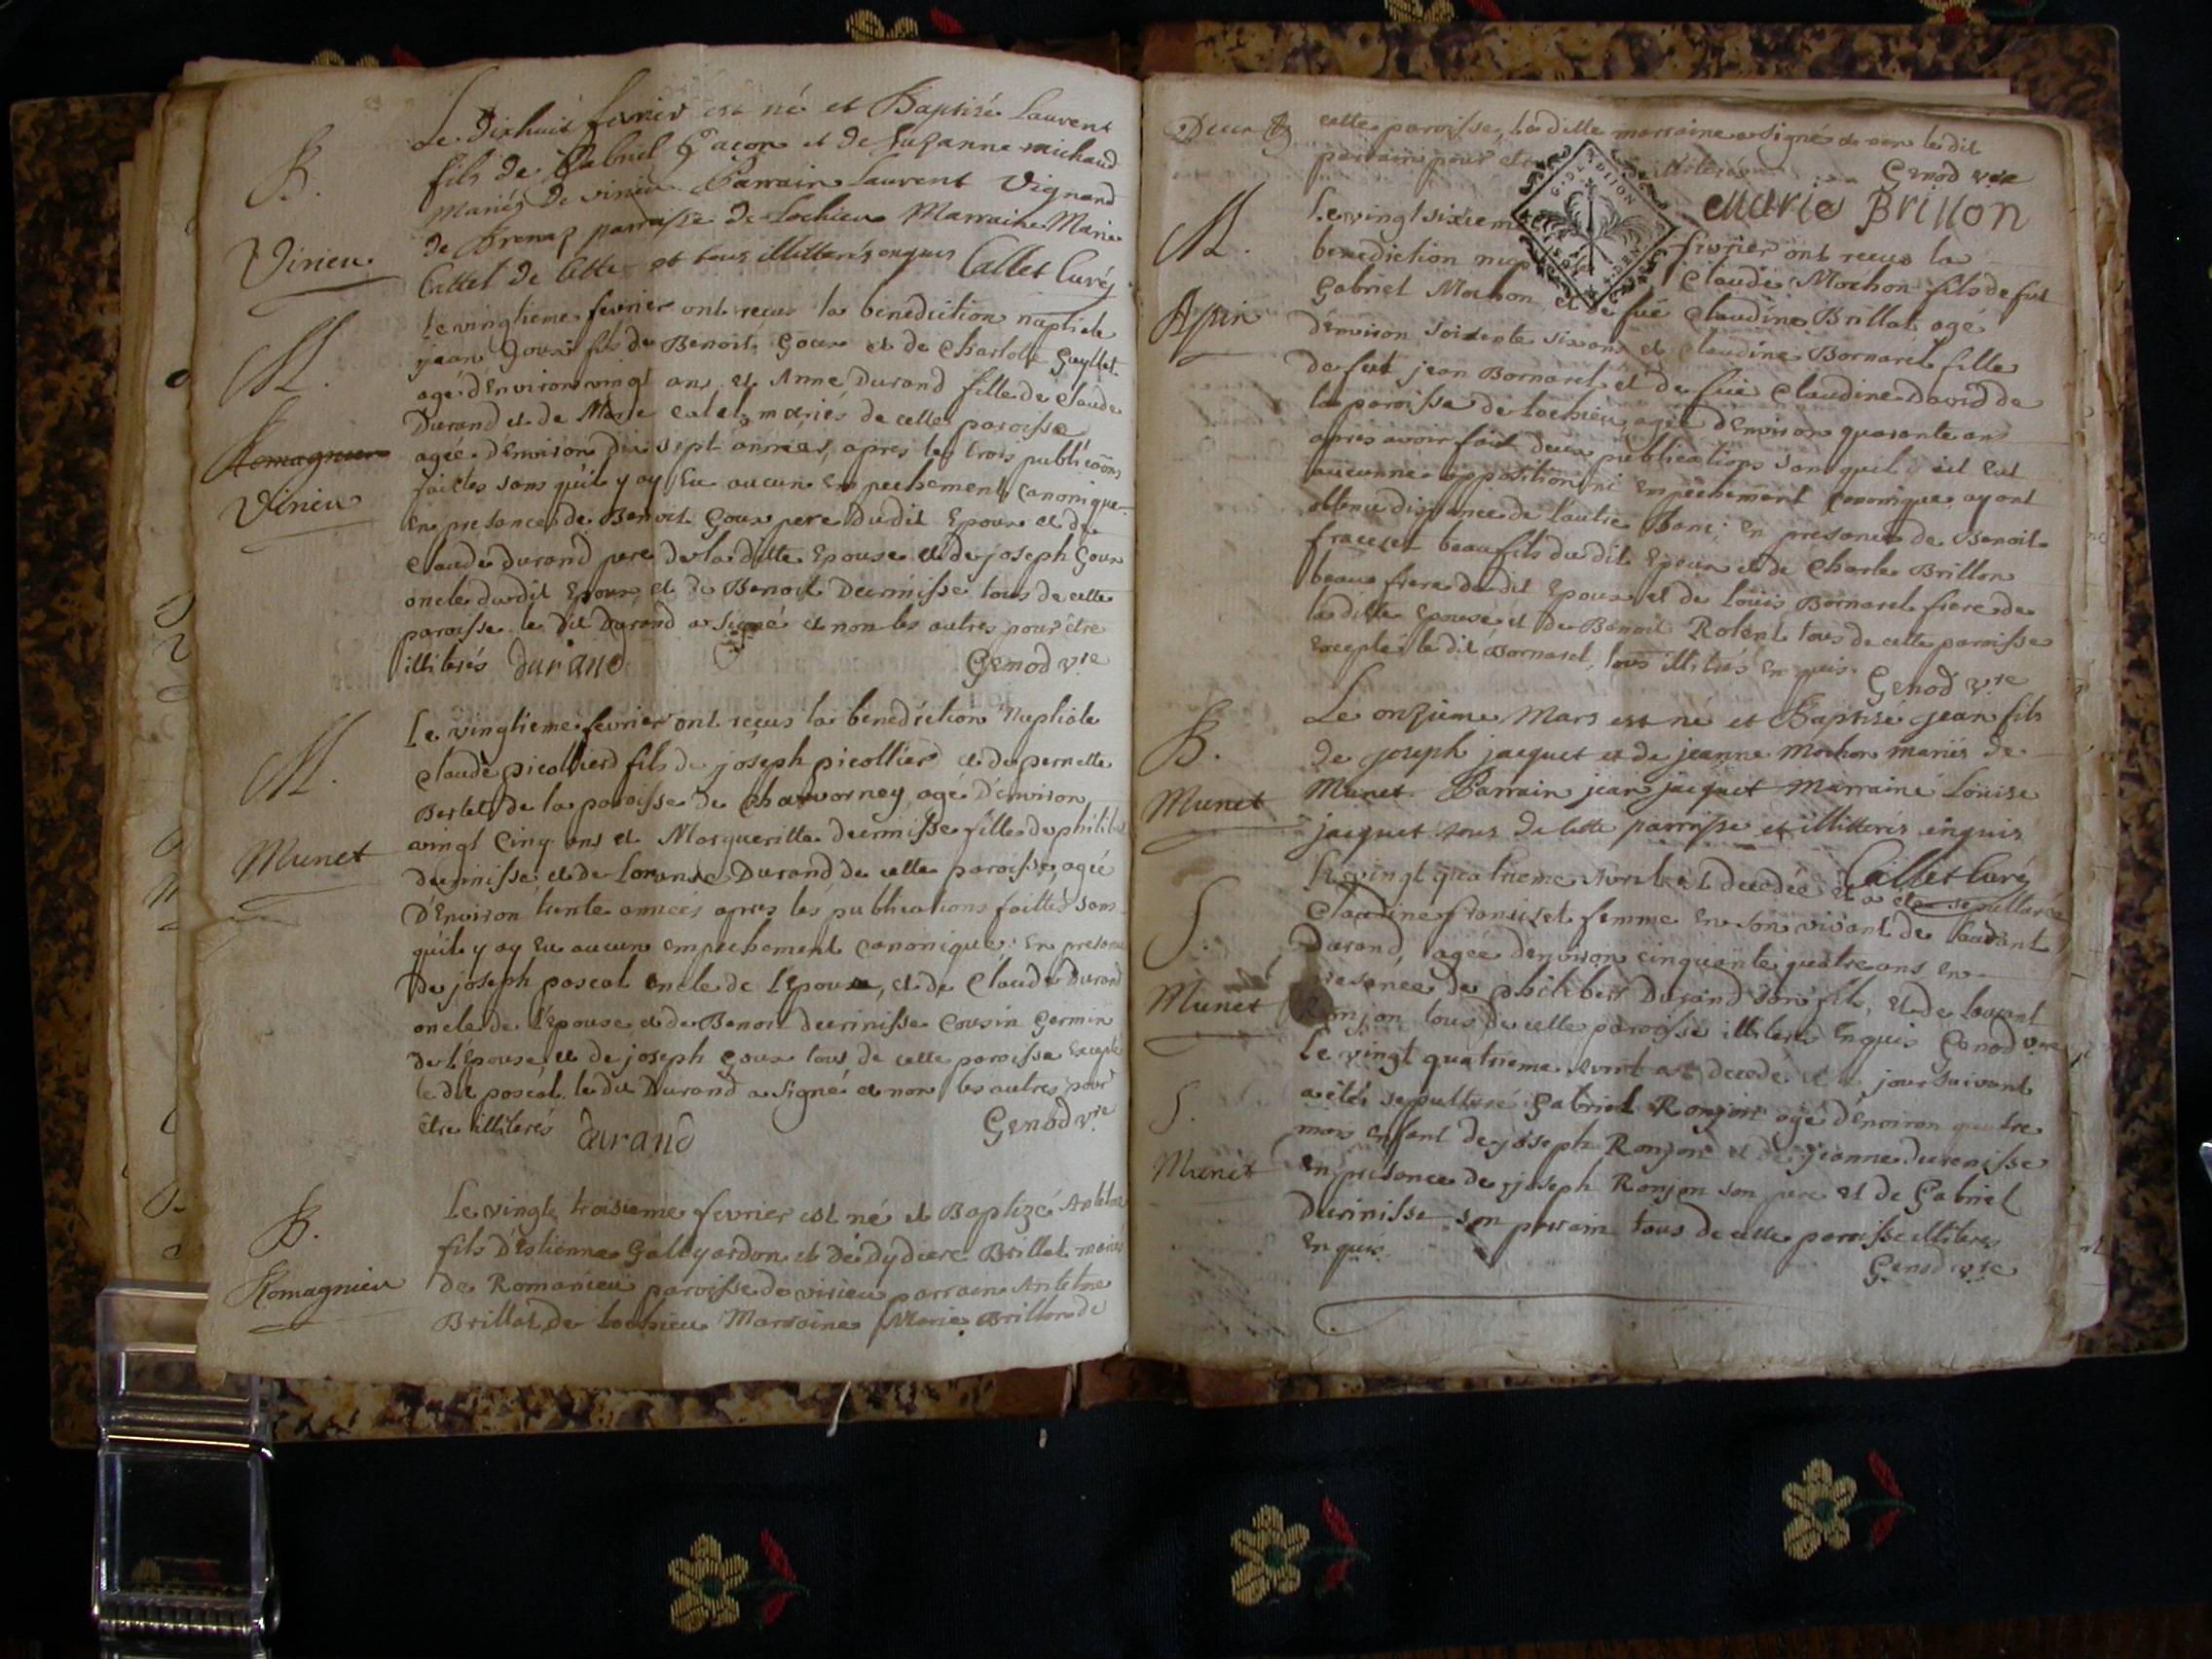 B.
Virieu
Le Dixhuit fevrier est né et Baptisé Laurent
fils de Gabriel et de Suzanne michaud
Mariés de virieu Parrain Laurent Vignand
de Brenaz parroisse de Lochieu Marraine Marie
Callet de Cette et tous illitterés enquis Callet Curé
M.
Romagnieu
Virieu
Le vingtieme fevrier ont reçus la benediction nuptiale
jean Goux fils de Benoit Goux et de Charlotte Guyllet
agé d'Environ vingt ans et Anne Durand fille de Claude
Durand et de Marie mariés de cette paroisse
agée d'Environ dix sept années, apres les trois publicaõns
faittes sans qu'il y ay Eu aucun Empechement Canonique
En presance de Benoit Goux pere dudit Epoux et de
Claude Durand pere de la ditte Epouse et de joseph Goux
oncle du dit Epoux, et de Benoit Ducrinisse tous de cette
paroisse le dit Durand a Signé et non les autres pour être
illiterés durand Genod v.re
M.
Munet
Le vingtieme fevrier ont reçus la benediction Nuptiale
Claude picollierd fils de joseph picollierd et de pernette
Bertet de la paroisse de Charvorney, agé d'Environ
vingt Cinq ans et Margueritte Ducrinisse fille de philib
Ducrinisse et de Durand de cette paroisse, agée
D'Environ trente années apres les publications faittes sans
qu'il y ay Eu aucun empechement canonique: En presence
de joseph pascal oncle de l'Epoux, et de Claude Durand
oncle de l'Epouse et de Benoit ducrinisse Cousin Germin
de l'Epouse, et de joseph Goux tous de cette paroisse Excepté
le dit pascal. le dit Durand a Signé et non les autres pour
être illiterés durand Genod v.re
B.
Romagnieu
Le vingt troisieme fevrier est né et Baptizé Antelme
fils d'Estienne et de dydiere Brillat mariés
de Romanieu paroisse de virieu parrain Antelme
Brillat de Lochieu Marraine Marie Brillon de
cette paroisse, la ditte marraine a signé et non le dit
parrain pour etre illiteré Genod v.re
Marie Brillon
G. DE DIJON
M.
Apin
Le vingt sixieme fevrier ont reçus la
benediction nup Claude Mochon fils de fut
Gabriel Mochon et de fue Claudine Brillat agé
d'Environ soixante six ans et Claudine Bornarel fille
de fut jean Bornarel et de fue Claudine David de
la paroisse de lochieu agée d'Environ quarante ans
apres avoir fait deux publications sans qu'il y ait Eut
aucunne opposition ni Empechement Canonique, ayant
obtenu dispence de l'autre Banc; En presence de Benoit
beaufils du dit Epoux et de Charle Brillon
beau frere du dit Epoux et de Louis Bornarel frere de
la ditte Epouse et de Benoit Rolent tous de cette paroisse
Excepté le dit Bornarel, tous illiterés Enquis. Genod v.re
B.
Munet
Le onzieme Mars est né et Baptisé jean fils
de joseph jacquet et de jeanne Mochon mariés de
Munet. Parrain jean jacquet Marraine Louise
jacquet tous de Cette parroisse et illitterés enquis
Callet Curé
S.
Munet
Le vingt quatrieme Avril est decedée et a eté sepulturée
Claudine femme En son vivant de laurant
Durand, agée d'environ cinquante quatre ans En
presence de philibert Durand son fils, et de laurant
Ronjon tous de cette paroisse illiterés Enquis Genod v.re
S.
Munet
Le vingt quatrieme Avril est decedé et le jour suivant
a eté sepulturé Gabriel Ronjon agé d'Environ quatre
mois enfant de joseph Ronjon et de jeanne ducrinisse
En presence de joseph Ronjon son pere et de Gabriel
Ducrinisse son parrain tous de cette paroisse illiteres
Enquis. Genod v.re